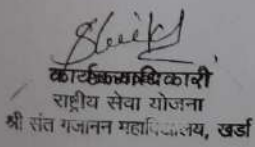 कार्यक्रमाधिकारी
राष्ट्रीय सेवा योजना
श्री संत गजानन महाविद्यालय, खर्डा